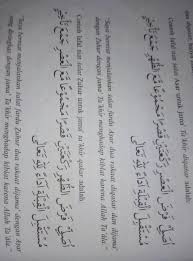 Contoh lafal niat salat Asar untuk jama' ta'khir diqasar adalah:
مَعَ الظُّهْرِ جَمْعَ تَأْخِيْرٍ
مُسْتَقْبِلَ الْقِبْلَةِ أَدَاءً لِلَّهِ تَعَالَى
"Saya berniat menjalankan salat fardu Asar dua rakaat diqasar dan dijama'
dengan Zuhur dengan jama' Ta'khir menghadap kiblat karena Allah Ta'ala."
Contoh lafal niat salat Zuhur untuk jama' ta'khir qashar adalah:
أُصَلِّى فَرْضَ الظُّهْرِ رَكْعَتَيْنِ قَصْرًا مَجْمُوعًا مَعَ الْعَصْرِ جَمْعَ تَأْخِيْرٍ
مُسْتَقْبِلَ الْقِبْلَةِ أَدَاءً لِلَّهِ تَعَالَى
"Saya berniat menjalankan salat fardu Zuhur dua rakaat diqasar dan
yang dijama' dengan Asar dengan jama' Ta'khir menghadap kiblat karena Allah Ta'ala."